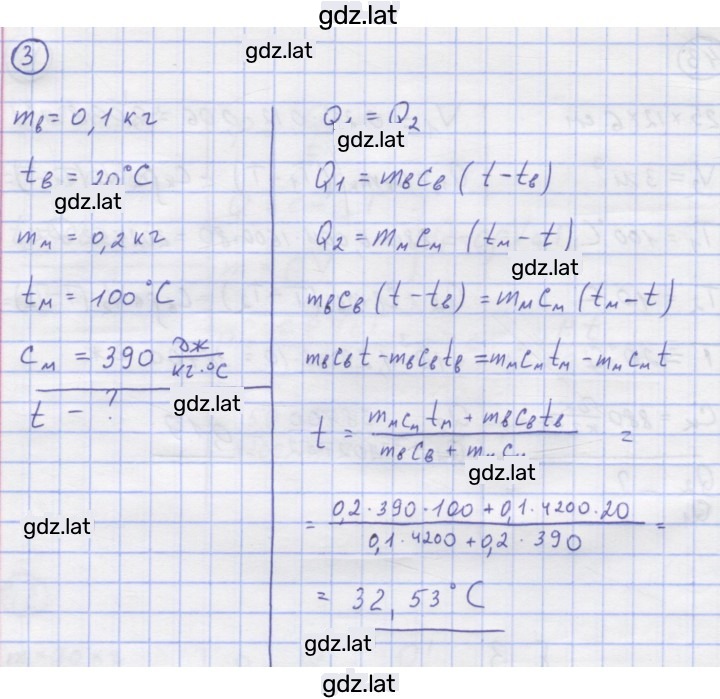 gdz.lat
gdz.lat
3
mв = 0,1 кг
tв = 20°C
gdz.lat
mм = 0,2 кг
tм = 100°C
cм = 390 Дж/кг·°C
gdz.lat
t - ?
gdz.lat
Q1 = Q2
gdz.lat
Q1 = mвcв (t - tв)
Q2 = mмcм (tм - t)
gdz.lat
mвcв (t - tв) = mмcм (tм - t)
mвcвt - mвcвtв = mмcмtм - mмcмt
t = (mмcмtм + mвcвtв)/(mвcв + mмcм) =
gdz.lat
= (0,2·390·100 + 0,1·4200·20)/(0,1·4200 + 0,2·390) =
= 32,53°C
gdz.lat
gdz.lat